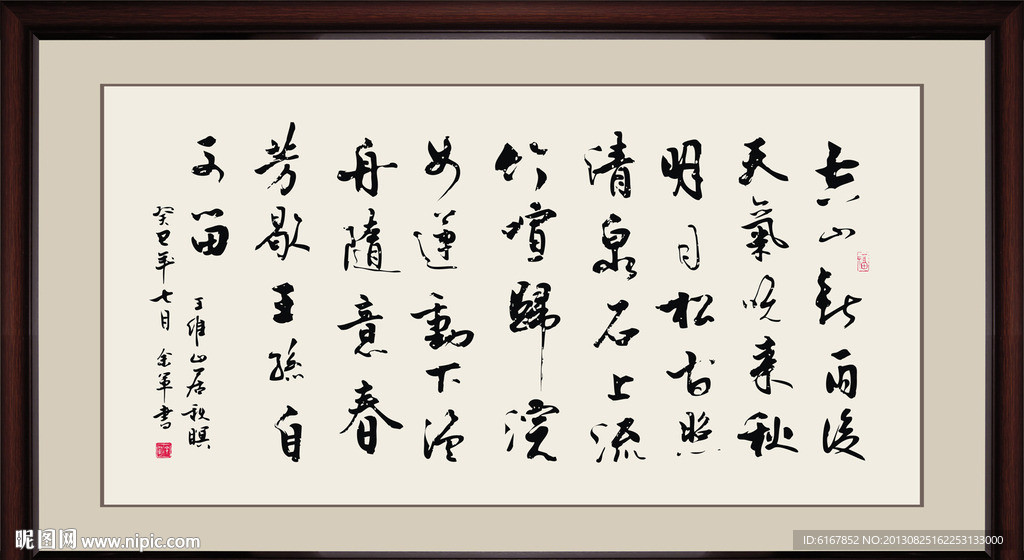 空山新雨後
天氣晚来秋
明月松间照
清泉石上流
竹喧歸浣
女蓮動下漁
舟隨意春
芳歇王孫自
可留
王維山居秋暝
癸巳年七月 余軍書
昵图网 www.nipic.com
ID:6167852 NO:20130825162253133000